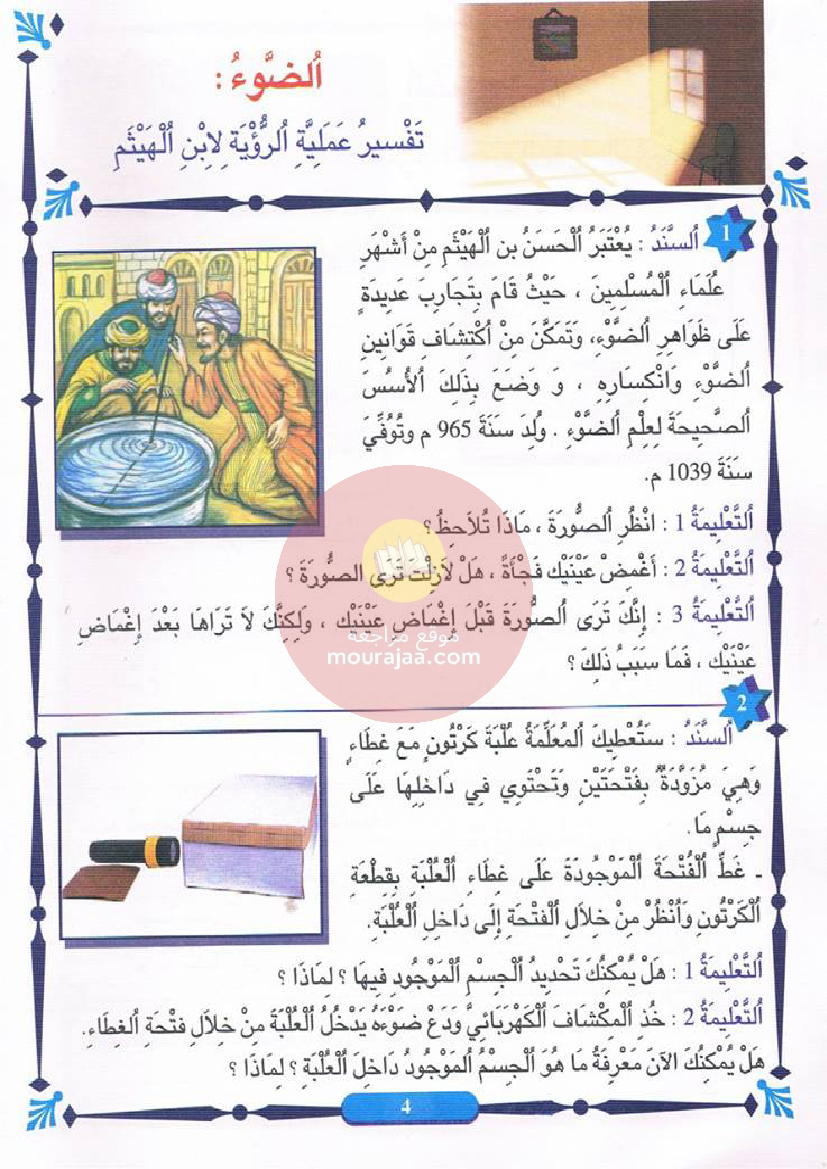 اُلضَّوْءُ :
تَفْسيرُ عَمَلِيَّةِ اُلرُّؤْيَةِ لِاِبْنِ اُلْهَيْثَمِ
1
اُلسَّنَدُ : يُعْتَبَرُ اُلْحَسَنُ بن اُلْهَيْثَمِ مِنْ أَشْهَرِ
عُلَمَاءِ اُلْمُسْلِمِينَ ، حَيْثُ قَامَ بِتَجَارِبَ عَدِيدَةٍ
عَلَى ظَوَاهِرِ اُلضَّوْءِ، وَتَمَكَّنَ مِنْ اُكْتِشَافِ قَوَانِينِ
اُلضَّوْءِ وَانْكِسَارِهِ ، وَ وَضَعَ بِذَلِكَ اُلأُسُسَ
اُلصَّحِيحَةَ لِعِلْمِ اُلضَّوْءِ . وُلِدَ سَنَةَ 965 م وتُوُفِّيَ
سَنَةَ 1039 م.
اُلتَّعْلِيمَةُ 1 : انْظُرِ اُلصُّورَةَ ، مَاذَا تُلاَحِظُ ؟
اُلتَّعْلِيمَةُ 2 : أَغْمِضْ عَيْنَيْكَ فَجْأَةً ، هَلْ لاَزِلْتَ تَرَى الصُّورَةَ ؟
اُلتَّعْلِيمَةُ 3 : إِنَّكَ تَرَى اُلصُّورَةَ قَبْلَ إِغْمَاضِ عَيْنَيْكِ ، وَلَكِنَّكَ لاَ تَرَاهَا بَعْدَ إِغْمَاضِ
عَيْنَيْكِ ، فَمَا سَبَبُ ذَلِكَ ؟
موقع مراجعة
mourajaa.com
2
اُلسَّنَدُ : سَتُعْطِيكَ اُلمُعَلِّمَةُ عُلْبَةَ كَرْتُونٍ مَعَ غِطَاءٍ
وَهِيَ مُزَوَّدَةٌ بِفَتْحَتَيْنِ وَتَحْتَوِي فِي دَاخِلِهَا عَلَى
جِسْمٍ مَا.
ـ غَطِّ اُلْفُتْحَةَ اُلْمَوْجُودَةَ عَلَى غِطَاءِ اُلْعُلْبَةِ بِقِطْعَةِ
اُلْكَرْتُونِ وَاُنْظُرْ مِنْ خلاَلِ اُلْفَتْحَةِ إِلَى دَاخِلِ اُلْعُلْبَةِ.
اُلتَّعْلِيمَةُ 1 : هَلْ يُمْكِنُكَ تَحْدِيدُ اُلْجِسْمِ اُلْمَوْجُودِ فِيهَا ؟ لِمَاذَا ؟
اُلتَّعْلِيمَةُ 2 : خُذِ اُلْمِكْشَافَ اُلْكَهْرَبَائِيَّ وَدَعْ ضَوْءَهُ يَدْخُلُ اُلْعُلْبَةَ مِنْ خِلاَلِ فِتْحَةِ اُلغِطَاءِ.
هَلْ يُمْكِنُكَ الآنَ مَعْرِفَةُ مَا هُوَ اُلْجِسْمُ اُلمَوْجُودُ دَاخِلَ اُلْعُلْبَةِ ؟ لِمَاذَا ؟
4